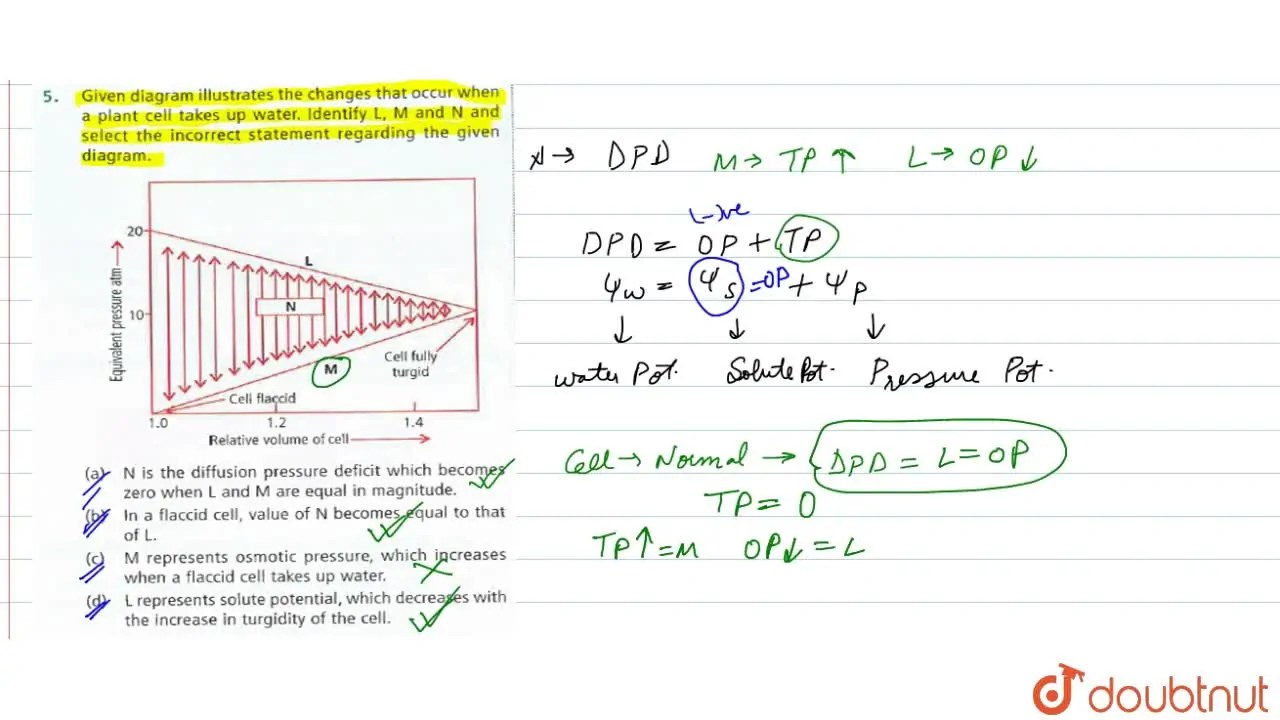 5. Given diagram illustrates the changes that occur when
a plant cell takes up water. Identify L, M and N and
select the incorrect statement regarding the given
diagram.
20
10
Equivalent pressure atm
L
N
M
Cell fully
turgid
Cell flaccid
1.0 1.2 1.4
Relative volume of cell
(a) N is the diffusion pressure deficit which becomes
zero when L and M are equal in magnitude.
(b) In a flaccid cell, value of N becomes equal to that
of L.
(c) M represents osmotic pressure, which increases
when a flaccid cell takes up water.
(d) L represents solute potential, which decreases with
the increase in turgidity of the cell.
→ DPD M → TP ↑ L → OP ↓
(-)ve
DPD = OP + TP
Ψw = Ψs = OP + Ψp
↓ ↓ ↓
Water Pot. Solute Pot. Pressure Pot.
Cell → Normal → DPD = L = OP
TP = 0
TP↑ = M OP↓ = L
doubtnut